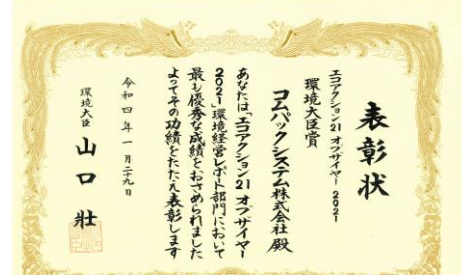 表彰状
エコアクション21 オブザイヤー 2021
環境大臣賞
コムパックシステム株式会社 殿
あなたは「エコアクション21 オブザイヤー
2021」環境経営レポート部門において
最も優秀な成績をおさめられました
よってその功績をたたえ表彰します
令和四年一月二十九日
環境大臣 山口 壯